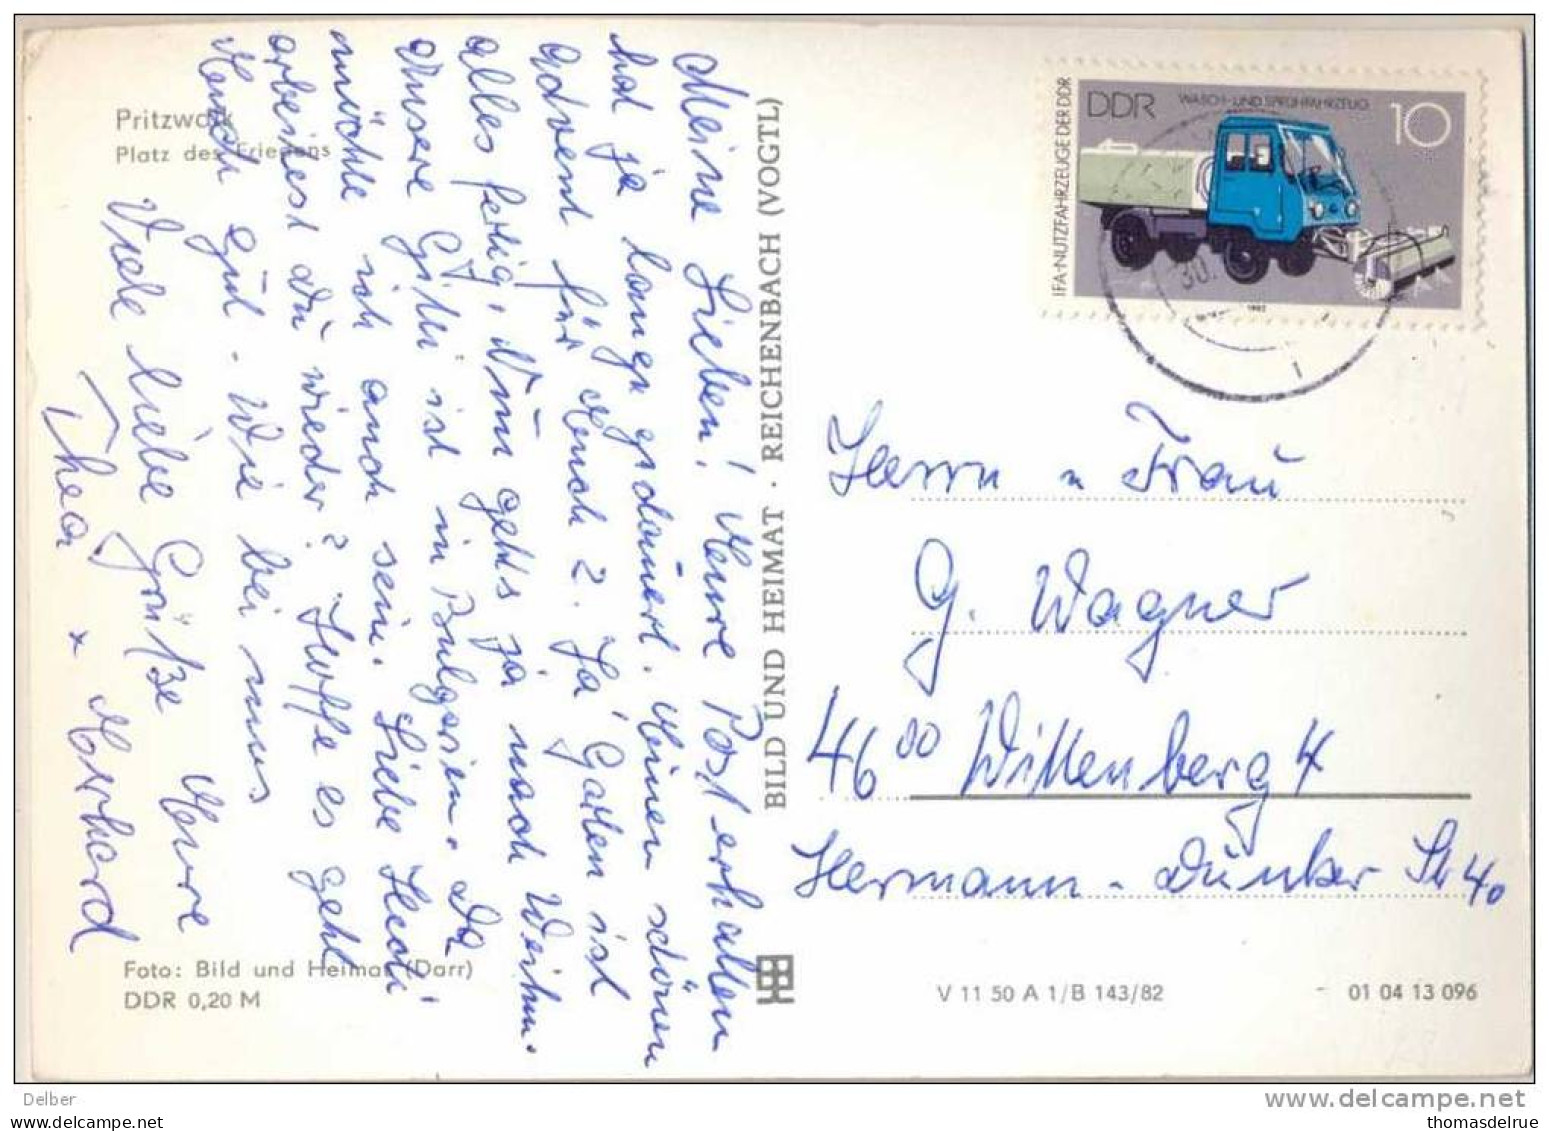 Pritzwalk
Platz des Friedens
Meine Lieben! Eure Post erhalten
hat ja lange gedauert. Einen schönen
Advent für Euch 2. Ja Garten ist
alles fertig, nun geht's ja nach Weihn.
Unsere Gitti ist in Bulgarien. Da
möchte ich auch sein. Liebe Hedi
arbeitest Du wieder? Hoffe es geht
Euch gut - Wie bei uns
Viele liebe Grüße Eure
Thea * Erhard
Foto: Bild und Heimat (Darr)
DDR 0,20 M
BILD UND HEIMAT · REICHENBACH (VOGTL)
IFA-NUTZFAHRZEUGE DER DDR
DDR
WASCH- UND SPRÜHFAHRZEUG
10
1982
30.
Herrn u Frau
G. Wagner
4600 Wittenberg 4
Hermann-Dunker Str 40
V 11 50 A 1/B 143/82
01 04 13 096
Delber
www.delcampe.net
https://www.delcampe.net
thomasdelrue